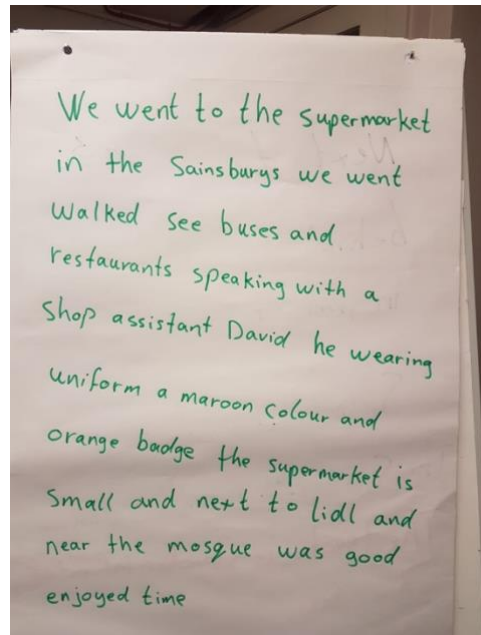 We went to the supermarket
in the Sainsburys we went
Walked see buses and
restaurants speaking with a
Shop assistant David he wearing
uniform a maroon colour and
orange badge the supermarket is
Small and next to lidl and
near the mosque was good
enjoyed time